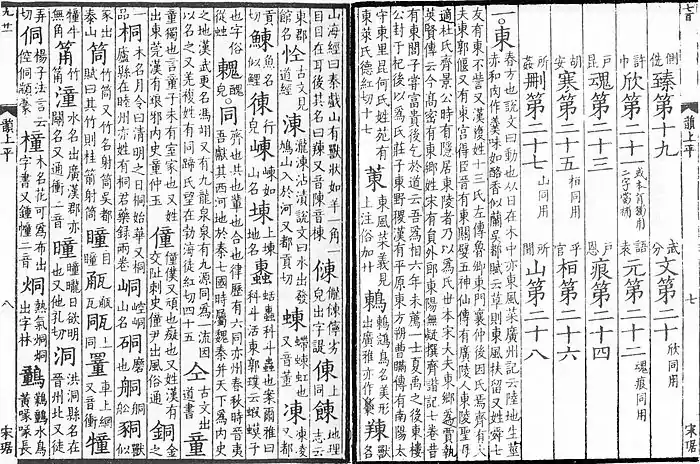 側詵臻第十九 武分文第二十欣同用
欣第二十一 語袁元第二十二魂痕同用
戶昆魂第二十三 戶恩痕第二十四
胡安寒第二十五桓同用 胡官桓第二十六
所姦刪第二十七山同用 所閒山第二十八
一東春方也說文曰動也从日在木中亦東風菜廣州記云陸地生莖
赤和肉作羹味如酪香似蘭吳都賦云草則東風扶留又姓舜七
友有東不訾又漢複姓十三氏左傳魯卿東門襄仲後因氏焉齊有大
夫東郭偃又有東宮得臣晉有東關嬖五神仙傳有廣陵人東陵聖母
適杜氏齊景公時有隱居東陵者乃以為氏世本宋大夫東鄉為賈執
英賢傳云今高密有東鄉姓宋有員外郎東陽無疑撰齊諧記七卷昔
有東閭子嘗富貴後乞於道云吾為相六年未薦一士夏禹之後東樓
公封于杞後以為氏莊子東野稷漢有平原東方朔曹瞞傳有南陽太
守東里昆何氏姓苑有
東萊氏德紅切十七菄東風菜義見上注俗加艹鶇鶇鵍鳥名美形出廣雅亦作䍶獸名
山海經曰秦戲山有獸狀如羊一角一
目目在耳後其名曰䍶又音陳音棟倲儱倲儜劣皃出字諟上同地理志云
東郡館名㤏古文見道經涷瀧涷沾漬說文曰水出發鳩山入於河又都貢切蝀螮蝀虹也又音董凍凍凌又都
貢切鯟魚名似鯉𢔅行皃崠崠如山名埬上地名科斗蟲也案爾雅曰科斗活東郭璞云蝦蟇子
也俗從虫醜皃。同齊也共也輩也合也律歷有六同亦州春秋時晉夷吾獻其西河地於秦七國時屬魏秦并天下為內史
之地漢武更名馮翊又有九龍泉泉有九源同為一流因
以名之又羌複姓有同蹄氏望在勃海徒紅切四十五仝古文出道書童
童獨也言童子未有室家也又姓
出東莞漢有琅邪內史童仲玉僮僮僕又頑也癡也又姓漢有交阯刺史僮尹出風俗通銅金之一
品桐木名月令曰清明之日桐始華又桐廬縣在睦州亦姓有桐君藥錄兩卷峒崆峒山名硐磨也船獸似
豕出泰山筒竹筒又竹名射筒吳都賦曰其竹則桂箭射筒瞳目瞳瓦上同罿車上網又音衝犝
犝牛無角筩竹筩潼水名出廣漢郡亦關名又通衝二音曈曈曨日欲明也又他孔切洞洪洞縣名在晉州北又徒弄
切侗楊子法言云倥侗顓蒙橦木名花可為布出字書又鍾幢二音烔熱氣烔烔出字林水鳥黃喙喙長
韻上平
七
宋琚
韻上平
八
宋琚